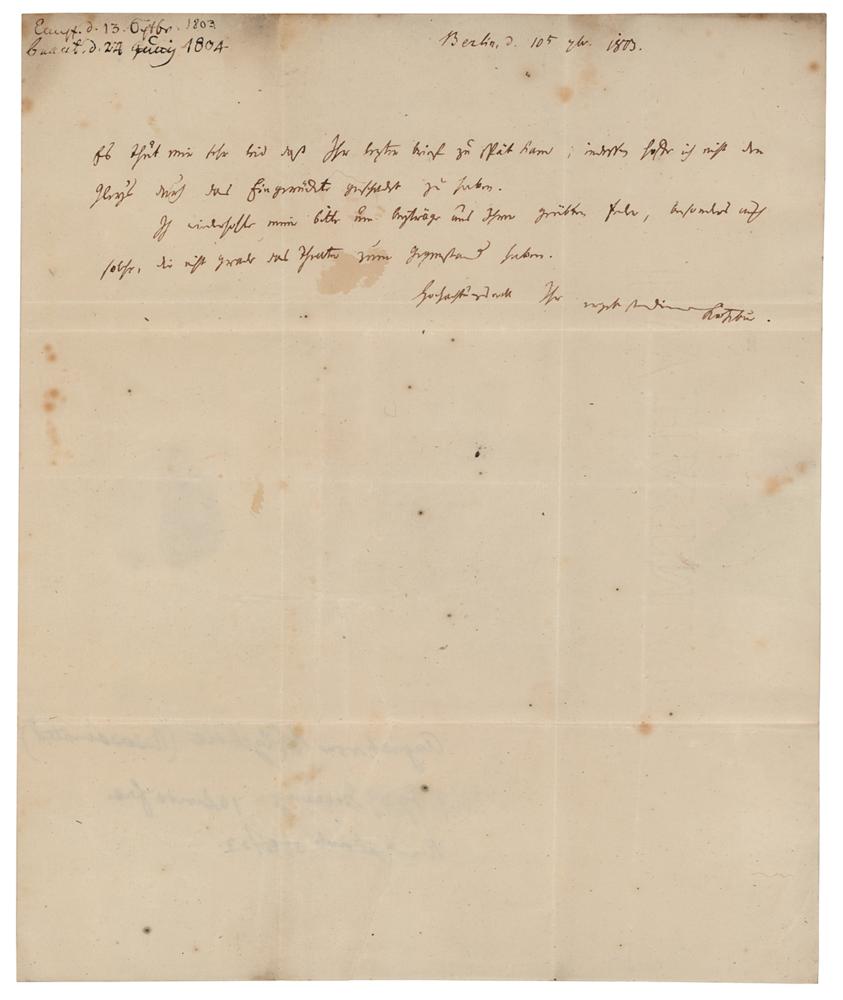 Empf. d. 13. Octbr. 1803
beant. d. 24 Junij 1804
Berlin, d. 10t 1803.
Es thut mir sehr leid daß Ihr letzter brief zu spät kam; indessen hoffe ich nicht den
durch das Eingerückte geschadet zu haben.
Ich wiederhohle meine bitte um beyträge aus Ihrer geübten Feder, besonders auch
solche, die nicht grade das Theater zum Gegenstand haben.
Hochachtungsvoll Ihr Kotzebue.